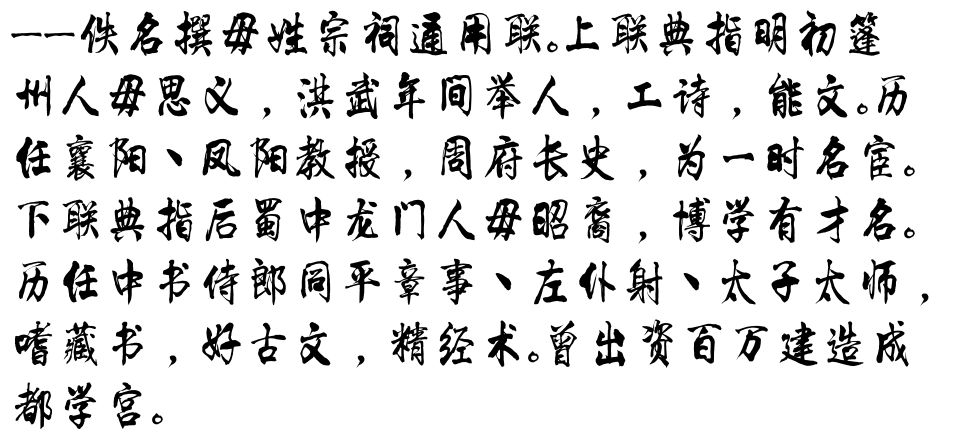 ——佚名撰毋姓宗祠通用联。上联典指明初篷
州人毋思义，洪武年间举人，工诗，能文。历
任襄阳、凤阳教授，周府长史，为一时名宦。
下联典指后蜀中龙门人毋昭裔，博学有才名。
历任中书侍郎同平章事、左仆射、太子太师，
嗜藏书，好古文，精经术。曾出资百万建造成
都学宫。